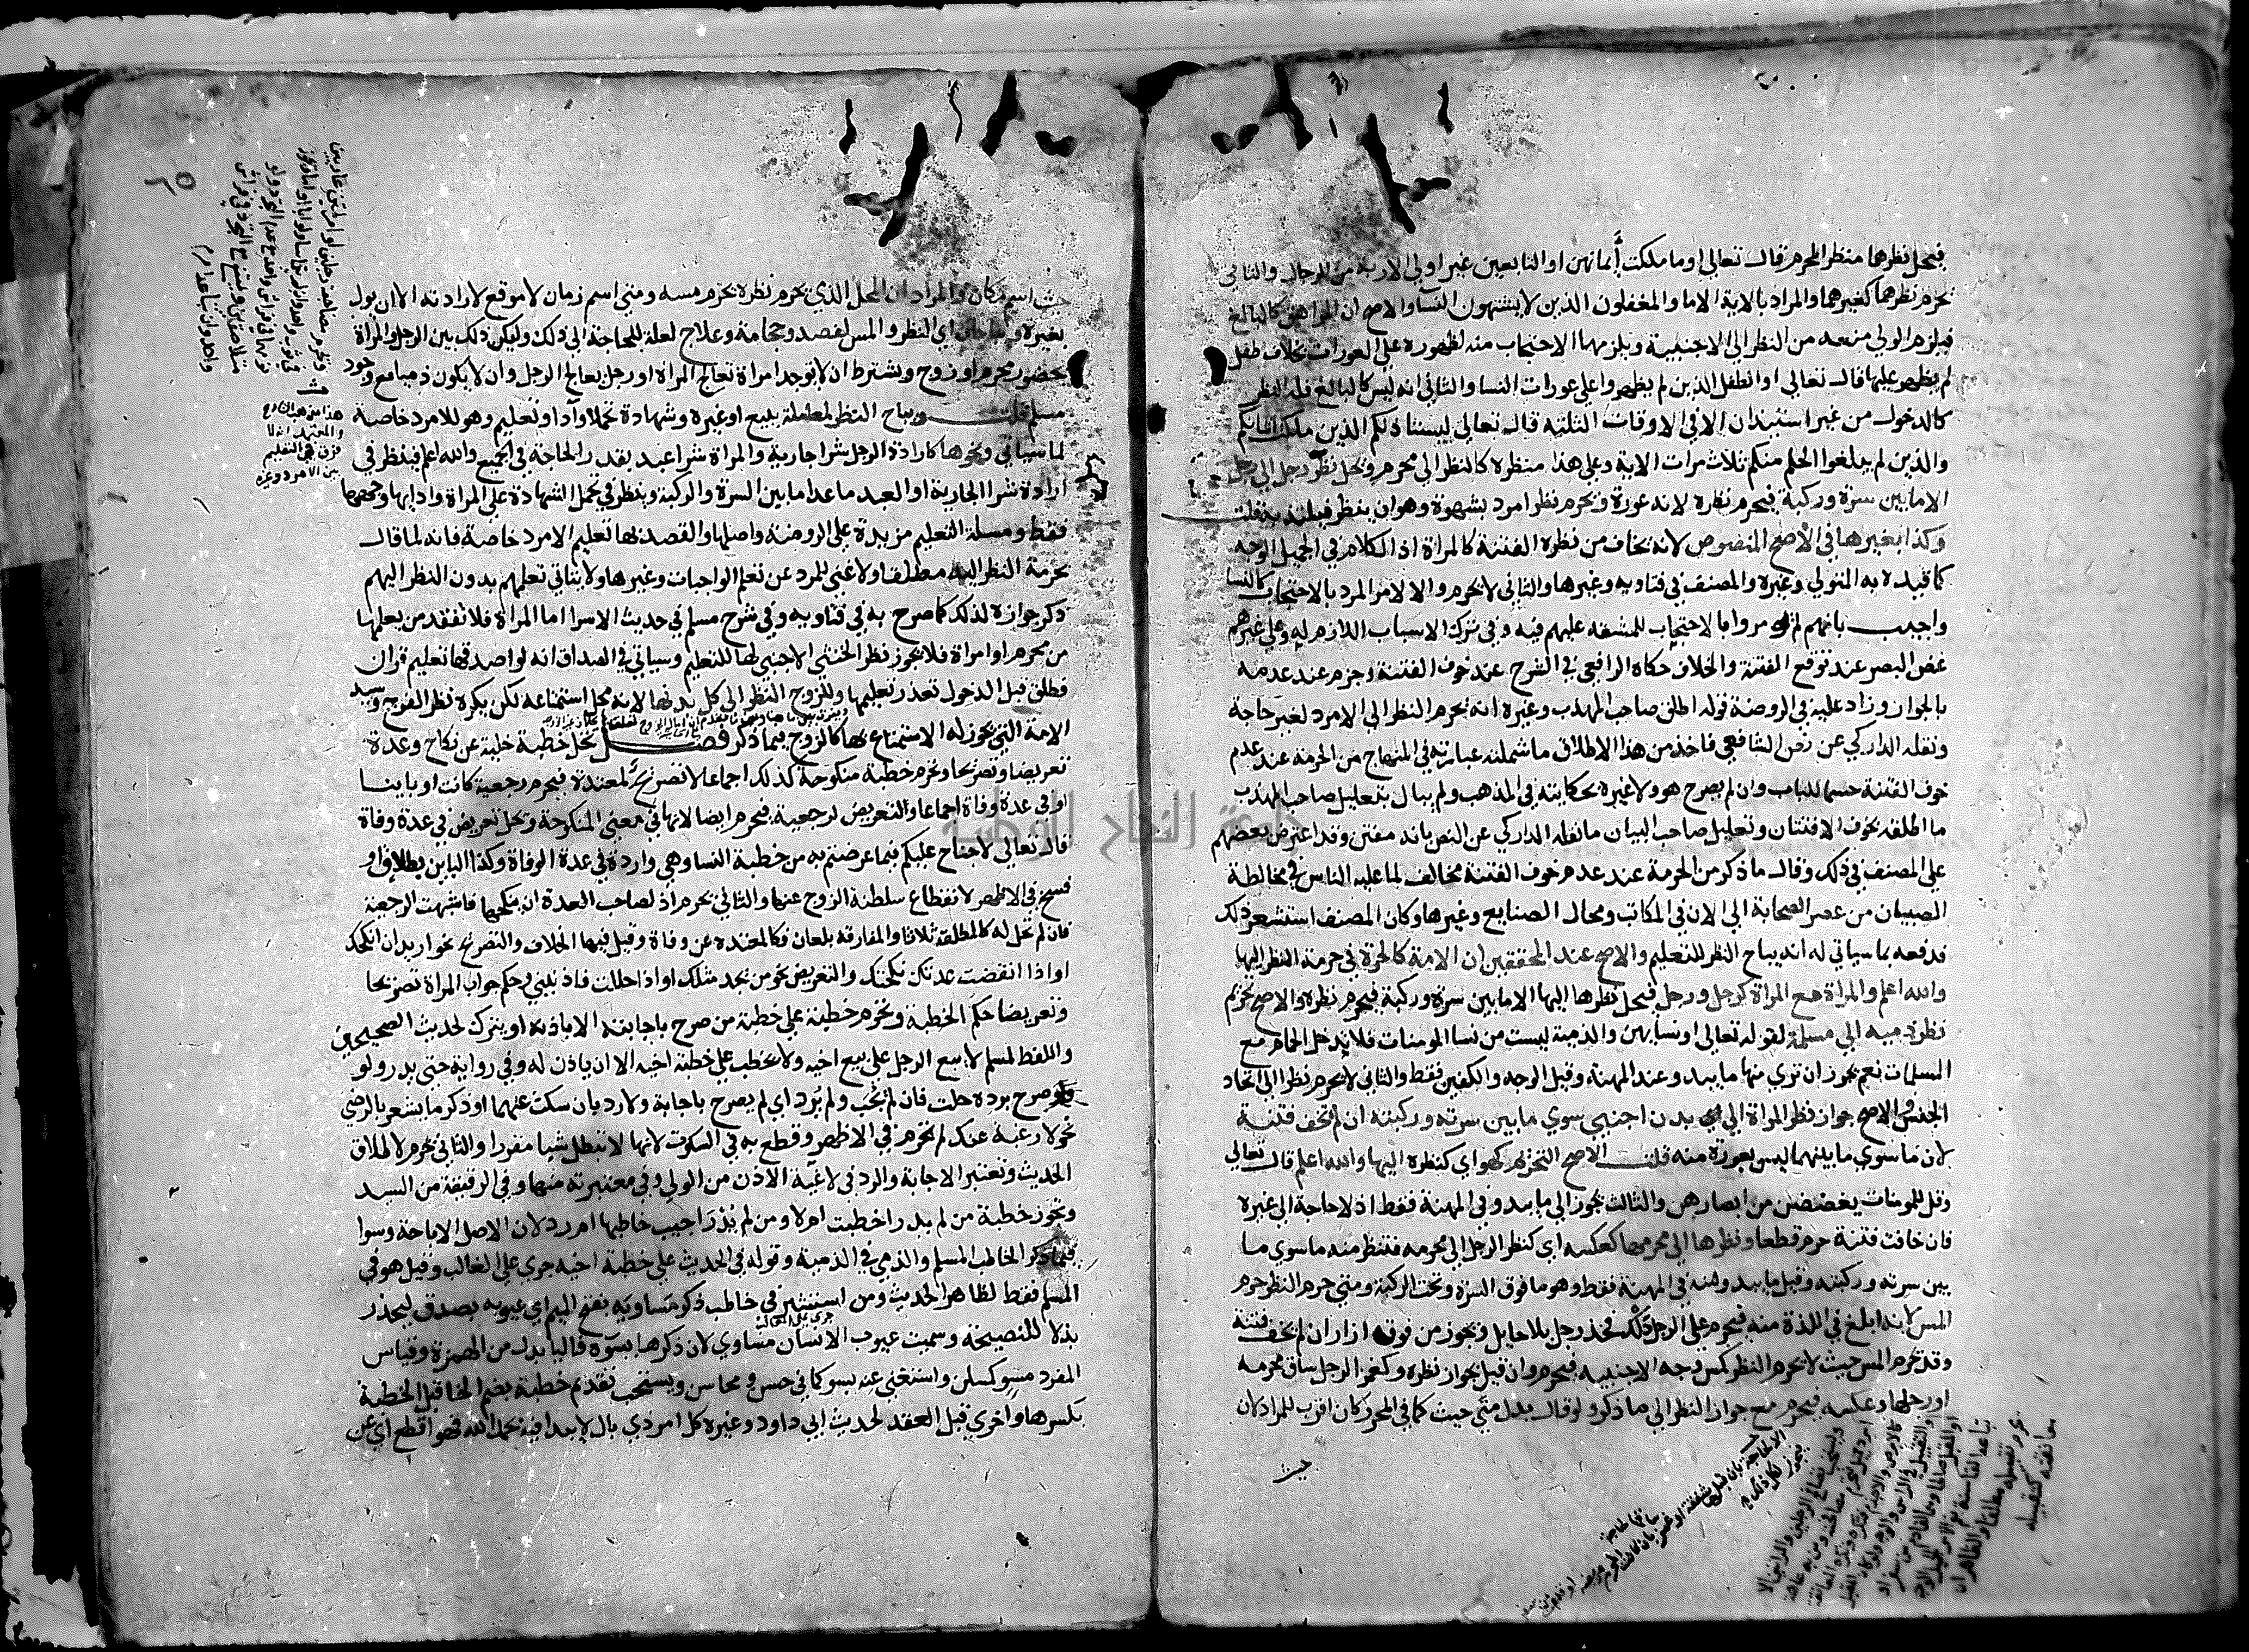 فيحل نظرهما منظر المحرم قال تعالى او ما ملكت أيمانهن او التابعين غير اولي الاربة من الرجال والثاني
يحرم نظرهما كغيرهما والمراد بالاية الاما والمغفلون الذين لا يشتهون النسا والاصح ان المراهق كالبالغ
فيلزم الولي منعه من النظر الى الاجنبية ويلزمها الاحتجاب منه لظهوره على العورات بخلاف طفل
لم يظهر عليها قال تعالى او الطفل الذين لم يظهروا على عورات النسا والثاني انه ليس كالبالغ فله النظر
كالدخول من غير استيذان الا في الاوقات الثلثه قال تعالى ليستاذنكم الذين ملكت ايمانكم
والذين لم يبلغوا الحلم منكم ثلاث مرات الاية وعلى هذا منظره كالنظر الى محرم ويحل نظر رجل الى رجل
الا ما بين سرة وركبة فيحرم نظره لانه عورة ويحرم نظر امرد بشهوة وهو ان ينظر فيلتذ به قلت
وكذا بغيرها في الأصح المنصوص لانه يخاف من نظره الفتنة كالمراة اذ الكلام في الجميل الوجه
كما قيد به المتولي وغيره والمصنف في فتاويه وغيرها والثاني لا يحرم والا لامر المرد بالاحتجاب كالنسا
واجيب بانهم لم يومروا بالاحتجاب للمشقة عليهم فيه وفي ترك الاسباب اللازم له وعلى غيرهم
غض البصر عند توقع الفتنة والخلاف حكاه الرافعي في الشرح عند خوف الفتنة وجزم عند عدمه
بالجواز وزاد عليه في الروضة قوله اطلق صاحب المهذب وغيره انه يحرم النظر الى الامرد لغير حاجة
ونقله الداركي عن نص الشافعي فاخذ من هذا الاطلاق ما شملته عبارته في المنهاج من الحرمة عند عدم
خوف الفتنة حسما للباب وان لم يصرح هو ولا غيره بحكايته في المذهب ولم يبال بتعليل صاحب المهذب
ما اطلقه بخوف الافتتان وتعليل صاحب البيان ما نقله الداركي عن النص بانه مفتن وقد اعترض بعضهم
على المصنف في ذلك وقال ما ذكر من الحرمة عند عدم خوف الفتنة مخالف لما عليه الناس في مخالطة
الصبيان من عصر الصحابة الى الان في المكاتب ومحال الصنايع وغيرها وكان المصنف استشعر ذلك
فدفعه بما سياتي له انه يباح النظر للتعليم والاصح عند المحققين ان الامة كالحرة في حرمة النظر اليها
والله اعلم والمراة مع المراة كرجل ورجل فيحل نظرها اليها الا ما بين سرة وركبة فيحرم نظره والاصح تحريم
نظر ذمية الى مسلمة لقوله تعالى او نسايهن والذمية ليست من نسا المومنات فلا تدخل الحمام مع
المسلمات نعم يجوز ان ترى منها ما يبدو عند المهنة وقيل الوجه والكفين فقط والثاني لا يحرم نظرا الى اتحاد
الجنس والاصح جواز نظر المراة الى بدن اجنبي سوى ما بين سرته وركبته ان لم تخف فتنة
لان ما سوى ما بينهما ليس بعورة منه قلت الاصح التحريم كهو اي كنظره اليها والله اعلم قال تعالى
وقل للمومنات يغضضن من ابصارهن والثالث يجوز الى ما يبدو في المهنة فقط اذ لا حاجة الى غيره
فان خافت فتنة حرم قطعا ونظرها الى محرمها كعكسه اي كنظر الرجل الى محرمه فتنظر منه ما سوى ما
بين سرته وركبته وقيل ما يبدو منه في المهنة فقط وهو ما فوق السرة وتحت الركبة ومتى حرم النظر حرم
المس لانه ابلغ في اللذة منه فيحرم على الرجل دلك فخذ رجل بلا حايل ويجوز من فوق ازار ان لم يخف فتنة
وقد يحرم المس حيث لا يحرم النظر كمس وجه الاجنبية فيحرم وان قيل بجواز نظره وكغمز الرجل ساق محرمه
او رجلها وعكسه فيحرم مع جواز النظر الى ما ذكر ولو قال بدل متى حيث كما في المحرر كان اقرب للمراد لان
حيث
حيث اسم مكان والمراد ان المحل الذي يحرم نظره يحرم مسه ومتى اسم زمان لا موقع لارادته الا ان يول
بغيره ويباحان اي النظر والمس لفصد وحجامة وعلاج لعلة للحاجة الى ذلك وليكن ذلك بين الرجل والمراة
بحضور محرم او زوج ويشترط ان لا توجد امراة تعالج المراة او رجل يعالج الرجل وان لا يكون ذميا مع وجود
مسلم قلت ويباح النظر لمعاملة ببيع او غيره وشهادة تحملا وآدا وتعليم وهو للامرد خاصة
لما سياتي ونحوها كارادة الرجل شرا جارية والمراة شرا عبد بقدر الحاجة في الجميع والله اعلم فينظر في
ارادة شرا الجارية او العبد ما عدا ما بين السرة والركبة وينظر في تحمل الشهادة على المراة وادايها وجهها
فقط ومسلة التعليم مزيدة على الروضة واصلها والقصد بها تعليم الامرد خاصة فانه لما قال
بحرمة النظر اليه مطلقا ولا غنى للمرد عن تعلم الواجبات وغيرها ولا يتاتى تعلمهم بدون النظر اليهم
ذكر جوازه لذلك كما صرح به في فتاويه وفي شرح مسلم في حديث الاسرا اما المراة فلا تفقد من يعلمها
من محرم او امراة فلا يجوز نظر الخنثى الاجنبي لها للتعليم وسياتي في الصداق انه لو اصدقها تعليم قران
فطلق قبل الدخول تعذر تعليمها وللزوج النظر الى كل بدنها لانه محل استمتاعه لكن يكره نظر الفرج وسيد
الامة التي يجوز له الاستمتاع بها كالزوج فيما ذكر فصل تحل خطبة خلية عن نكاح وعدة
تعريضا وتصريحا وتحرم خطبة منكوحة كذلك اجماعا لا تصريح لمعتدة فيحرم رجعية كانت او باينا
او في عدة وفاة اجماعا والتعريض لرجعية فيحرم ايضا لانها في معنى المنكوحة ويحل تعريض في عدة وفاة
قال تعالى لا جناح عليكم فيما عرضتم به من خطبة النسا وهي واردة في عدة الوفاة وكذا الباين بطلاق او
فسخ في الاظهر لانقطاع سلطنة الزوج عنها والثاني يحرم اذ لصاحب العدة ان ينكحها فاشبهت الرجعية
فان لم تحل له كالمطلقة ثلاثا والمفارقة بلعان فكالمعتدة عن وفاة وقيل فيها الخلاف والتصريح نحو اريد ان انكحك
او اذا انقضت عدتك نكحتك والتعريض نحو من يجد مثلك او اذا حللت فاذنيني وحكم جواب المراة تصريحا
وتعريضا حكم الخطبة وتحرم خطبة على خطبة من صرح باجابته الا باذنه او يترك لحديث الصحيحين
واللفظ لمسلم لا يبع الرجل على بيع اخيه ولا يخطب على خطبة اخيه الا ان ياذن له وفي رواية حتى يذر ولو
صرح برده حلت فان لم يجب ولم يرد اي لم يصرح باجابة ولا رد بان سكت عنهما او ذكر ما يشعر بالرضى
نحو لا رغبة عنك لم تحرم في الاظهر وقطع به في السكوت لانها لا تبطل شيا مقررا والثاني تحرم لاطلاق
الحديث وتعتبر الاجابة والرد في لاغية الاذن من الولي وفي معتبرته منها وفي الرقيقة من السيد
وتجوز خطبة من لم يدر اخطبت ام لا ومن لم يدر اجيب خاطبها ام رد لان الاصل الاباحة وسوا
فيما ذكر الخاطب المسلم والذمي في الذمية وقوله في الحديث على خطبة اخيه جرى على الغالب وقيل هو في
المسلم فقط لظاهر الحديث ومن استشير في خاطب ذكر مساويه بفتح الميم اي عيوبه بصدق ليحذر
بذلا للنصيحة وسميت عيوب الانسان مساوي لان ذكرها يسوه فاليا بدل من الهمزة وقياس
المفرد مسو كمسكن واستغني عنه بسو كما في حسن ومحاسن ويستحب تقديم خطبة بضم الخا قبل الخطبة
بكسرها واخرى قبل العقد لحديث ابي داود وغيره كل امر ذي بال لا يبدا فيه بحمد الله فهو اقطع اي عن